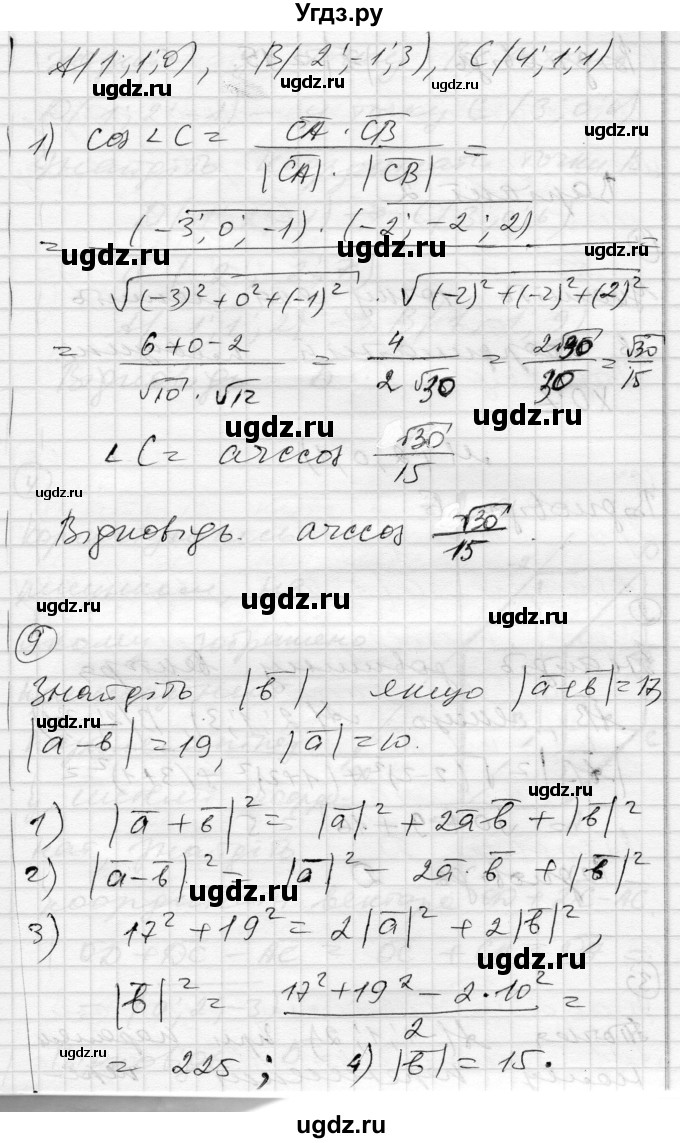 Угдз.ру
A(1; 1; 0), B(2; -1; 3), C(4; 1; 1)
ugdz.ru ugdz.ru
1) cos ∠C = (CA · CB) / (|CA| · |CB|) =
ugdz.ru
= (-3; 0; -1) · (-2; -2; 2) / √((-3)² + 0² + (-1)²) · √((-2)² + (-2)² + (2)²)
ugdz.ru ugdz.ru
= (6 + 0 - 2) / (√10 · √12) = 4 / (2√30) = 2√30 / 30 = √30 / 15
ugdz.ru ugdz.ru
∠C = arccos √30 / 15
ugdz.ru
Відповідь. arccos √30 / 15.
ugdz.ru
ugdz.ru ugdz.ru ugdz.ru
9
Знайдіть |b|, якщо |a+b| = 17,
ugdz.ru
|a-b| = 19, |a| = 10.
ugdz.ru
1) |a + b|² = |a|² + 2a·b + |b|²
2) |a-b|² = |a|² - 2a·b + |b|²
ugdz.ru
3) 17² + 19² = 2|a|² + 2|b|²,
ugdz.ru
|b|² = (17² + 19² - 2·10²) / 2 =
ugdz.ru
= 225; 4) |b| = 15.
ugdz.ru
ugdz.ru